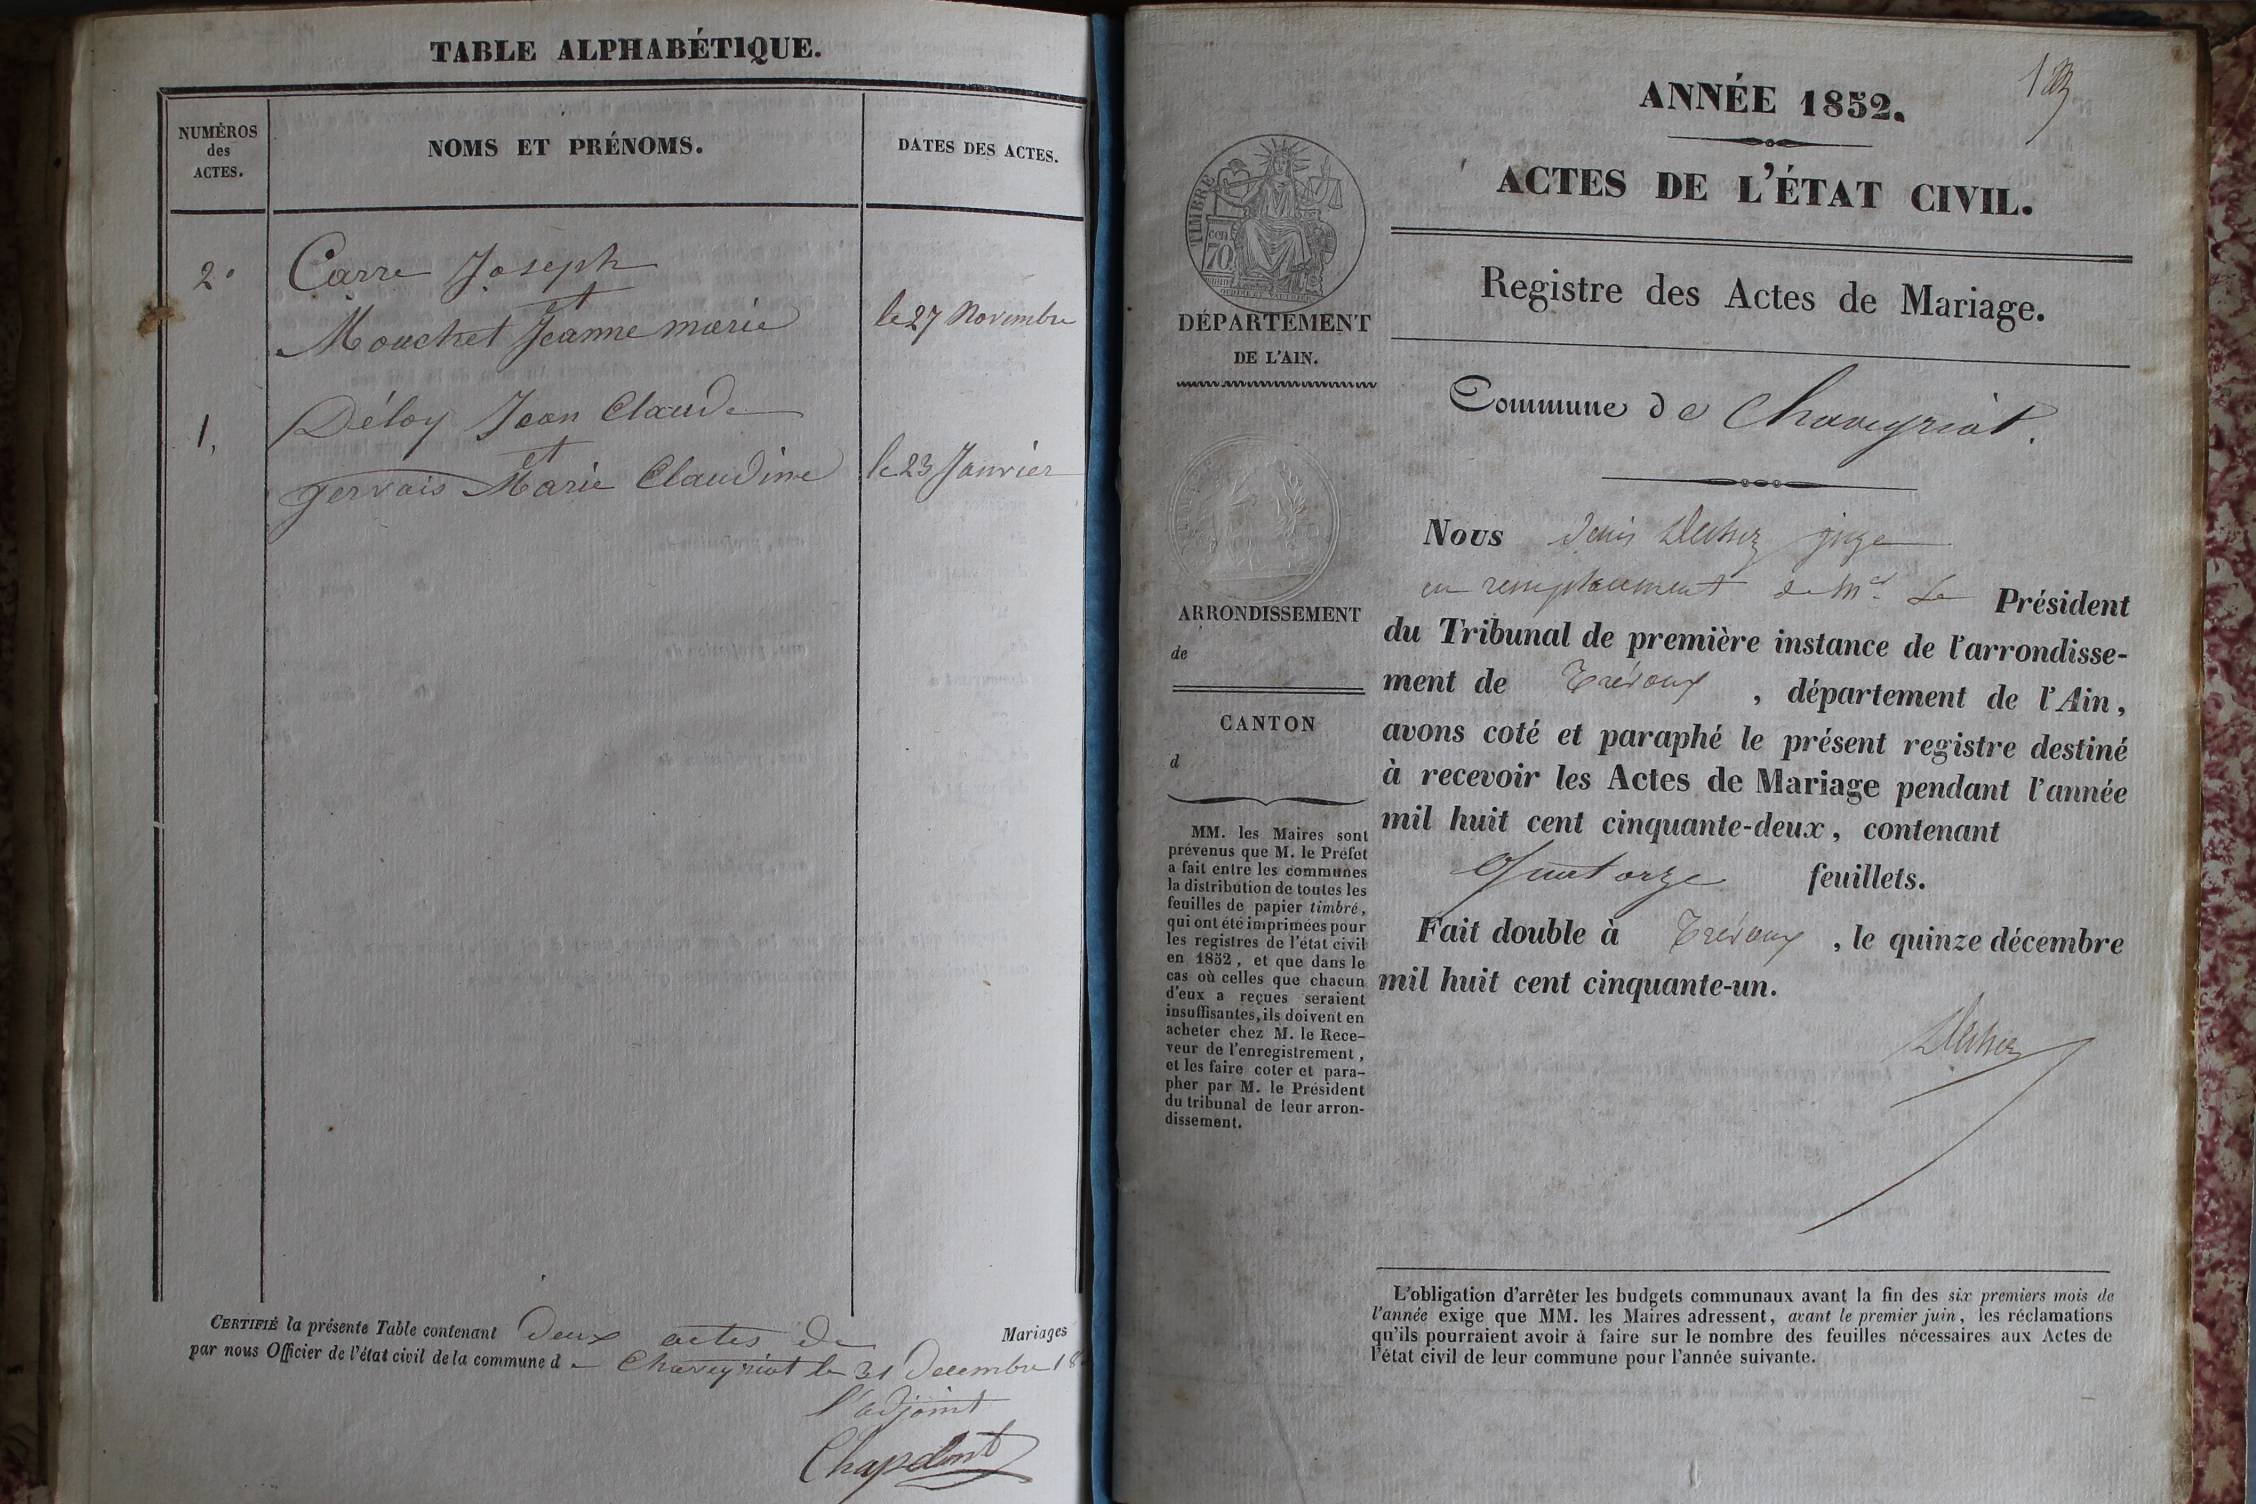 TABLE ALPHABÉTIQUE.
NUMÉROS
des
ACTES.
NOMS ET PRÉNOMS.
DATES DES ACTES.
2°
Carre Joseph
et
Mouchet Jeanne marie
le 27 Novembre
1,
Déloy Jean Claude
et
gervais Marie Claudine
le 23 Janvier
CERTIFIÉ la présente Table contenant deux actes de Mariages
par nous Officier de l'état civil de la commune de Chaveyriat le 31 Decembre 18
l'adjoint
ANNÉE 1852.
ACTES DE L'ÉTAT CIVIL.
TIMBRE
cen
70
Registre des Actes de Mariage.
DÉPARTEMENT
DE L'AIN.
Commune de Chaveyriat.
Nous denis juge
en remplacement de Mr Le Président
du Tribunal de première instance de l'arrondisse-
ment de Trévoux, département de l'Ain,
avons coté et paraphé le présent registre destiné
à recevoir les Actes de Mariage pendant l'année
mil huit cent cinquante-deux, contenant
Quatorze feuillets.
Fait double à Trévoux, le quinze décembre
mil huit cent cinquante-un.
ARRONDISSEMENT
de
CANTON
d
MM. les Maires sont
prévenus que M. le Préfet
a fait entre les communes
la distribution de toutes les
feuilles de papier timbré,
qui ont été imprimées pour
les registres de l'état civil
en 1852, et que dans le
cas où celles que chacun
d'eux a reçues seraient
insuffisantes, ils doivent en
acheter chez M. le Rece-
veur de l'enregistrement,
et les faire coter et para-
pher par M. le Président
du tribunal de leur arron-
dissement.
L'obligation d'arrêter les budgets communaux avant la fin des six premiers mois de
l'année exige que MM. les Maires adressent, avant le premier juin, les réclamations
qu'ils pourraient avoir à faire sur le nombre des feuilles nécessaires aux Actes de
l'état civil de leur commune pour l'année suivante.